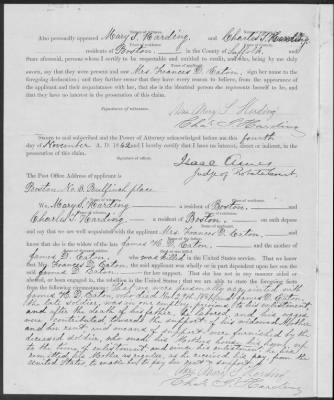 Also personally appeared Mary S. Harding and Charles T. Harding
residents of Boston in the County of Suffolk, and
State aforesaid, persons whom I certify to be respectable and entitled to credit, and who, being by me duly
sworn, say that they were present and saw Mrs Frances D. Eaton, sign her name to the
foregoing declaration; and they further swear that they have every reason to believe, from the appearance
of the applicant and their acquaintance with her, that she is the identical person she represents herself to be, and
that they have no interest in the prosecution of this claim.
Signatures of witnesses.
Mary S. Harding
Chas T. Harding
Sworn to and subscribed and the Power of Attorney acknowledged before me this fourth
day of November A. D. 1862 and I hereby certify that I have no interest, direct or indirect, in the
prosecution of this claim.
Signature of officer,
Isaac Ames
Judge of Probate Court
The Post Office Address of applicant is
Boston No. 3 Bulfinch place
We, Mary S. Harding a resident of Boston and
Charles T. Harding a resident of Boston, on oath depose
and say that we are well acquainted with the applicant Mrs. Frances D. Eaton
know that she is the widow of the late James H. D. Eaton, and the mother of
James D. Eaton, who was killed in the United States service. That we
know that Frances D. Eaton, the said applicant was wholly or in part dependent upon her son the
said James D. Eaton for her support. That she has not in any manner aided or
abetted, or been engaged in, the rebellion in the United States; that we are able to state the foregoing facts
from the following circumstances: That we were personally acquainted with
James H. D. Eaton, who died
the father of the soldier, was in our employ previous to his enlistment
and after the death of his father, he labored, and his wages
were contributed towards the support of his widowed Mother
and her rent and means of support were furnished by the
deceased soldier, who made his Mother's house his home, up
to the time of enlistment and since his enlistment he has
remitted his Mother as regular, as he received his pay from the
United States to enable her to pay her rent & support
Mary S. Harding
Chas T. Harding